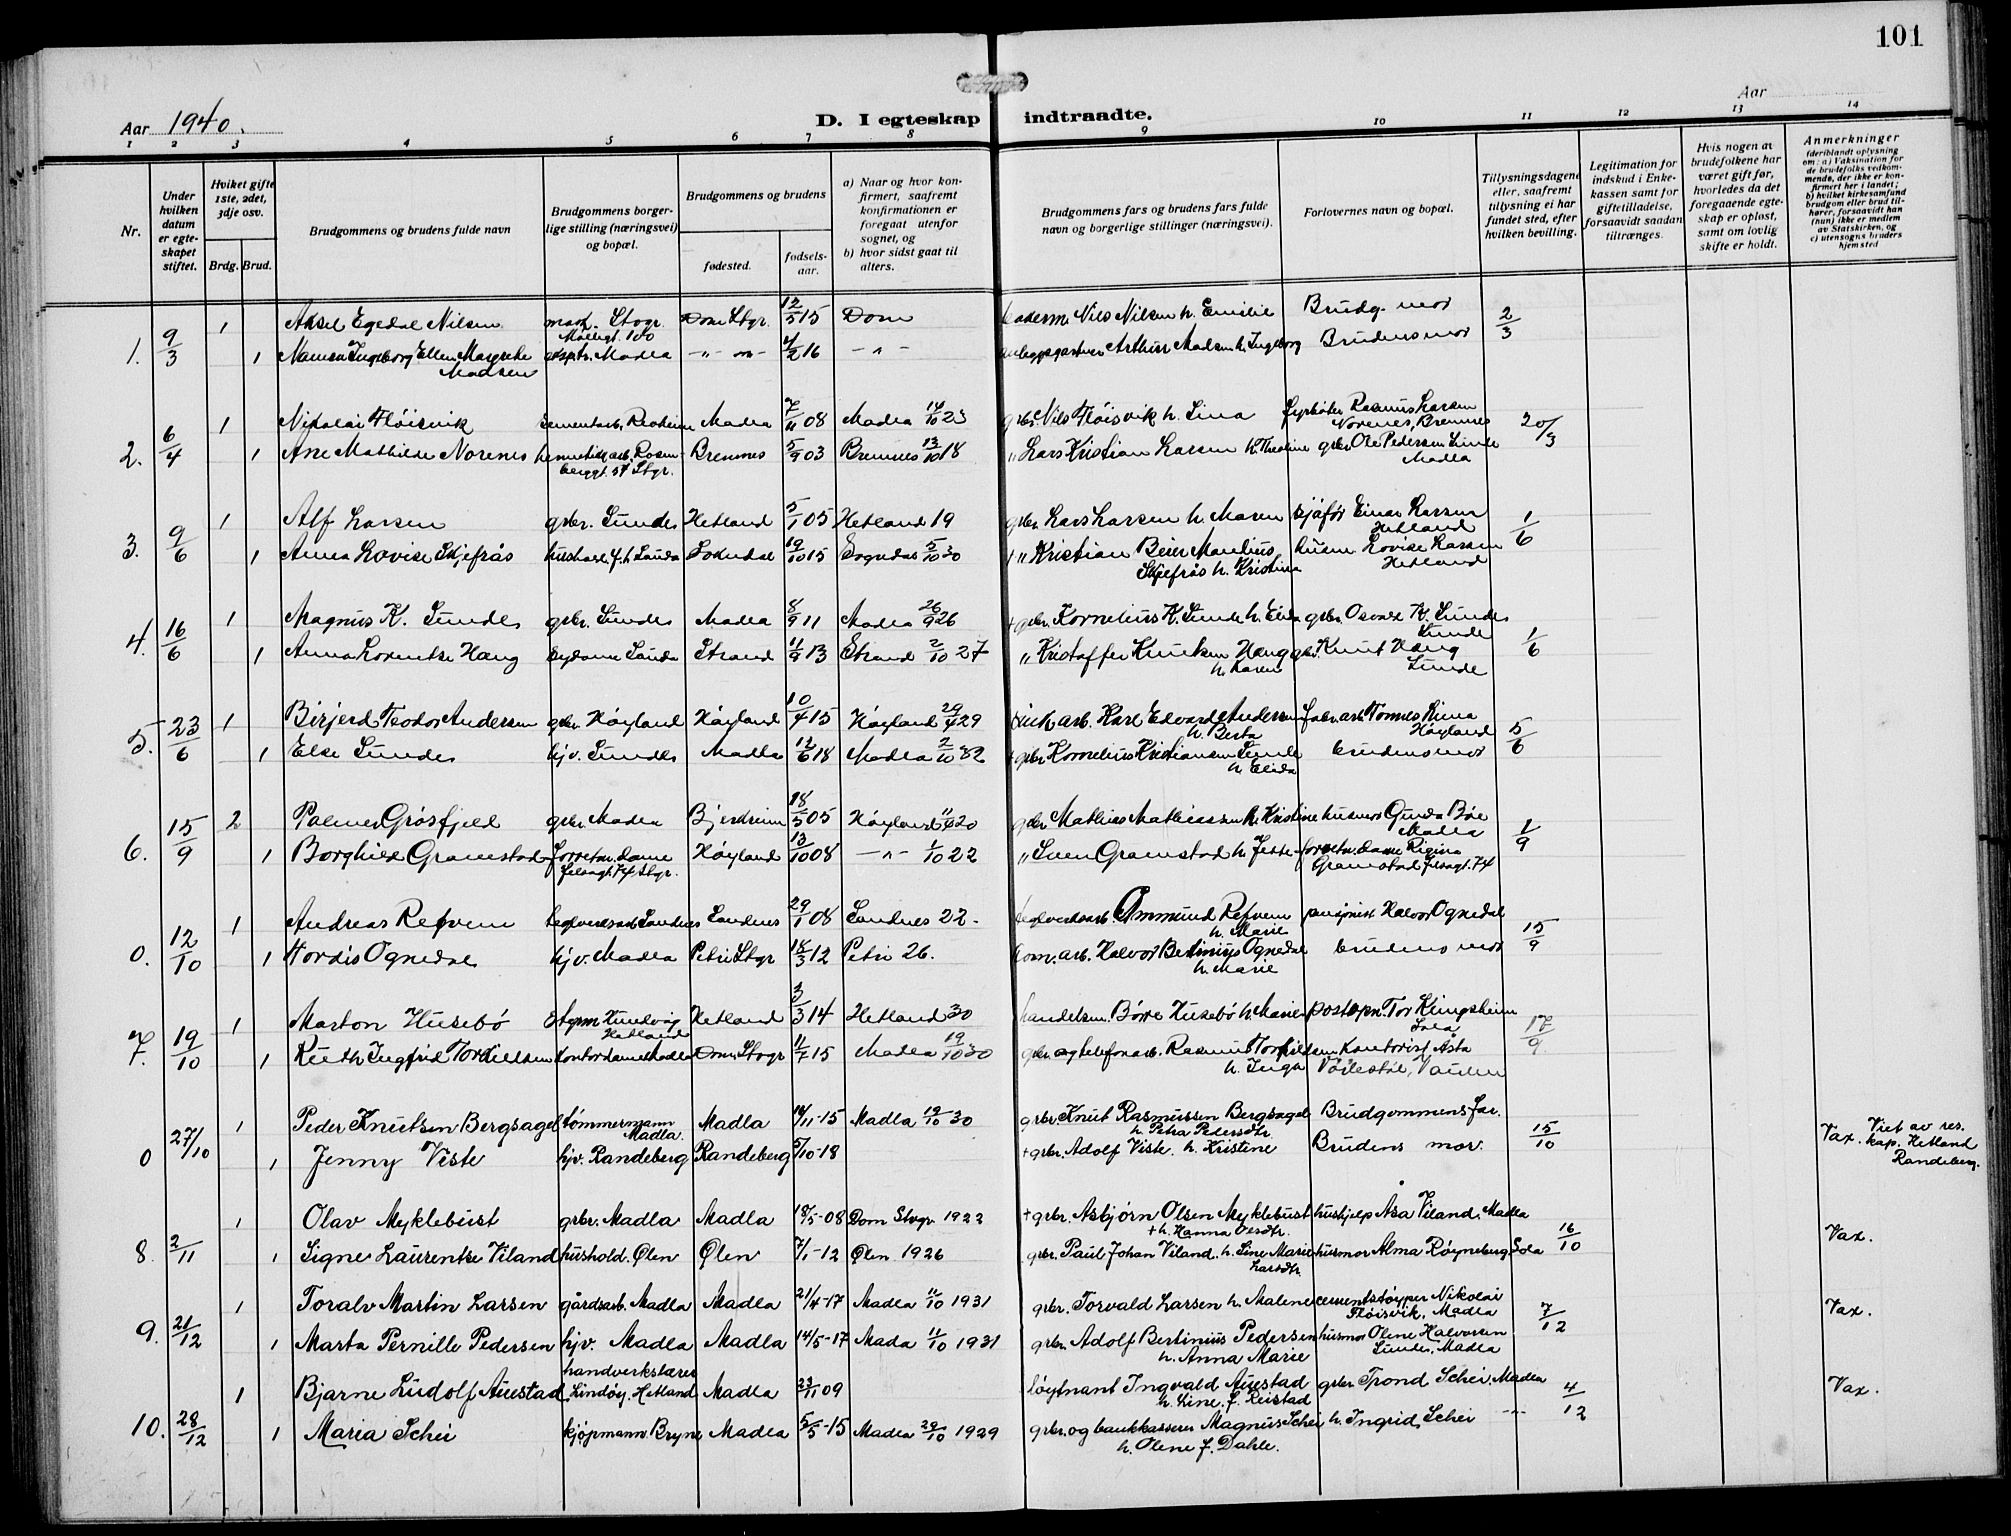 101
Aar 1940.
D. I egteskap indtraadte.
Aar
1 2 3 4 5 6 7 8 9 10 11 12 13 14
Nr.
Under hvilken datum er egteskapet stiftet.
Hviket gifte 1ste, 2det, 3dje osv.
Brdg. Brud.
Brudgommens og brudens fulde navn
Brudgommens borgerlige stilling (næringsvei) og bopæl.
Brudgommens og brudens
fødested.
fødsels-aar.
a) Naar og hvor konfirmert, saafremt konfirmationen er foregaat utenfor sognet, og
b) hvor sidst gaat til alters.
Brudgommens fars og brudens fars fulde navn og borgerlige stillinger (næringsvei).
Forlovernes navn og bopæl.
Tillysningsdagene eller, saafremt tillysning ei har fundet sted, efter hvilken bevilling.
Legitimation for indskud i Enkekassen samt for giftetilladelse, forsaavidt saadan tiltrænges.
Hvis nogen av brudefolkene har været gift før, hvorledes da det foregaaende egteskap er opløst, samt om lovlig skifte er holdt.
Anmerkninger (deriblandt oplysning om: a) Vaksination for de brudefolks vedkommende, der ikke er konfirmert her i landet; b) hvilket kirkesamfund brudgom eller brud tilhører, forsaavidt han (hun) ikke er medlem av Statskirken, og c) utensogns bruders hjemsted
1 Aksel Egedal Nilsen mask. Stvgr. Dom Stgr. 12/5 15 Dom Nils Nilsen h. Emilie Brudg. mor
1. 9/3 1 Ingeborg Ellen Margrethe Madsen Madla -"- 4/2 16 -"- Arthur Madsen h. Ingeborg Brudens mor 2/3
1 Nikolai Fløisvik Madla 7/11 08 Madla 14/10 23 grbr. Nils Fløisvik h. Lina fyrbøter Rasmus Larsen Norenes, Bremnes
2. 6/4 1 Ane Mathilde Norenes Stgr. Bremnes 5/9 03 Bremnes 13/10 18 " Lars Kristian Larsen h. Theoline grbr. Ole Pedersen Sunde Madla 20/3
1 Alf Larsen grbr. Sunde Hetland 5/1 05 Hetland 19 grbr. Lars Larsen h. Maren sjåfør Einar Larsen Hetland
3. 9/6 1 Anna Lovise Skjefrås Sokndal 19/10 15 Sogndal 5/10 30 + " Kristian Beier Manlius Skjefrås h. Kristina husm. Lovise Larsen Hetland 1/6
1 Magnus K. Sunde grbr. Sunde Madla 8/9 11 Madla 26/9 26 + grbr. Kornelius K. Sunde h. Elida grbr. Osvald K. Sunde Sunde
4. 16/6 1 Anna Lorentse Haug Sunde Strand 11/9 13 Strand 2/10 27 " Kristoffer Knutsen Haug h. Karen grbr. Knut Haug Sunde 1/6
1 Birjerd Teodor Andersen grbr. Høyland Høyland 10/4 15 Høyland 29 Karl Edvard Andersen h. Berta fabr.arb. Tønnes Lima Høyland
5. 23/6 1 Else Sunde hjv. Sunde Madla 12/6 18 Madla 2/10 32 + grbr. Kornelius Kristiansen Sunde h. Elida brudens mor 5/6
2 Palmer Grøsfjeld grbr. Madla Bjerkreim 18/5 05 Høyland 20 grbr. Mathias Mathiassen h. Kristine husmor Gunda Bøe Madla
6. 15/9 1 Borghild Gramstad forretn.dame Stgr. Høyland 13/10 08 -"- 1/10 22 " Sven Gramstad h. forretn.dame Regina Gramstad 74 1/9
1 Andreas Refvem Sandnes Sandnes 29/1 08 Sandnes 22. Ommund Refvem h. Marie pensjonist Halvor Ognedal
0. 12/10 1 Tordis Ognedal hjv. Madla Petri Stgr 18/3 12 Petri 26. kom. arb. Halvor Bertinius Ognedal h. Marie brudens mor 15/9
1 Marton Husebø Hundvåg Hetland Hetland 3/3 14 Hetland 30 handelsm. Børre Husebø h. Marie postopn. Tor Klingsheim Sola
7. 19/10 1 Ruth Ingfrid Torkildsen kontordame Madla Dom Stvgr 11/7 15 Madla 19/10 30 grbr. og telefonarb. Rasmus Torkildsen h. Inga Kontorist Asta Vaulen 17/9
1 Peder Knutsen Bergsagel tømmermann Madla. Madla 14/11-15 Madla 19/10 30 grbr. Knut Rasmussen Bergsagel h. Petra Pedersdtr. Brudgommens far.
0 27/10 1 Jenny Viste hjv. Randeberg Randeberg 5/10-18 + grbr. Adolf Viste. h. Kristine Brudens mor. 15/10 Vax. Viet av res. kap. Hetland Randeberg.
1 Olav Myklebust grbr. Madla Madla 18/5-08 Dom Stvgr 1922 + grbr. Asbjørn Olsen Myklebust + h. Hanna Olsdtr. hushjelp Asa Viland, Madla
8. 2/11 1 Signe Laurentse Viland hushold. Ølen Ølen 7/1-12 Ølen 1926 grbr. Paul Johan Viland. h. Sine Marie Larsdtr. husmor Alma Røyneberg, Sola 16/10 Vax.
1 Toralv Martin Larsen gårdsarb. Madla Madla 21/4-17 Madla 11/10 1931 grbr. Torvald Larsen h. Malene cementstøyper Nikolai Fløisvik, Madla
9. 21/12 1 Marta Pernille Pedersen hjv. Madla Madla 14/5-17 Mada 11/10 1931 grbr. Adolf Bertinius Pedersen h. Anna Marie husmor Olene Halvorsen Sunde, Madla 7/12 Vax.
1 Bjarne Ludolf Auestad handverkslærer Lindøy, Hetland Madla 23/11 09 løytnant Ingvald Auestad h. Line, f. Reistad grbr Trond Schei, Madla
10. 28/12 1 Maria Schei kjøpmann. Bryne Madla 5/5-15 Madla 29/10 1929 grbr. og bankkasserer Magnus Schei h. Olene f. Dahle. h. Ingrid Schei -"- 4/12 Vax.